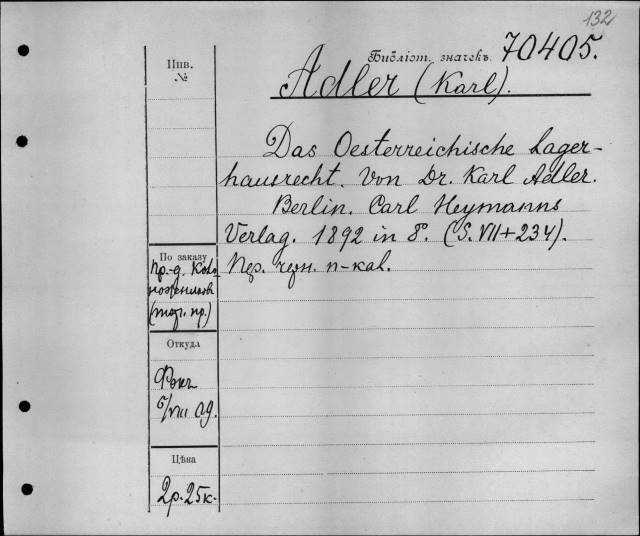 132
Библіот. значекъ 70405.
Инв.
№
Adler (Karl).
Das Oesterreichische Lager-
hausrecht. Von Dr. Karl Adler.
Berlin. Carl Heymanns
Verlag. 1892 in 8°. (S. VII+234).
Пер. черн. п-кал.
По заказу
пр.-д.
(торг. пр.)
Откуда
Фокъ
6/VIII 09.
Цѣна
2р. 25к.